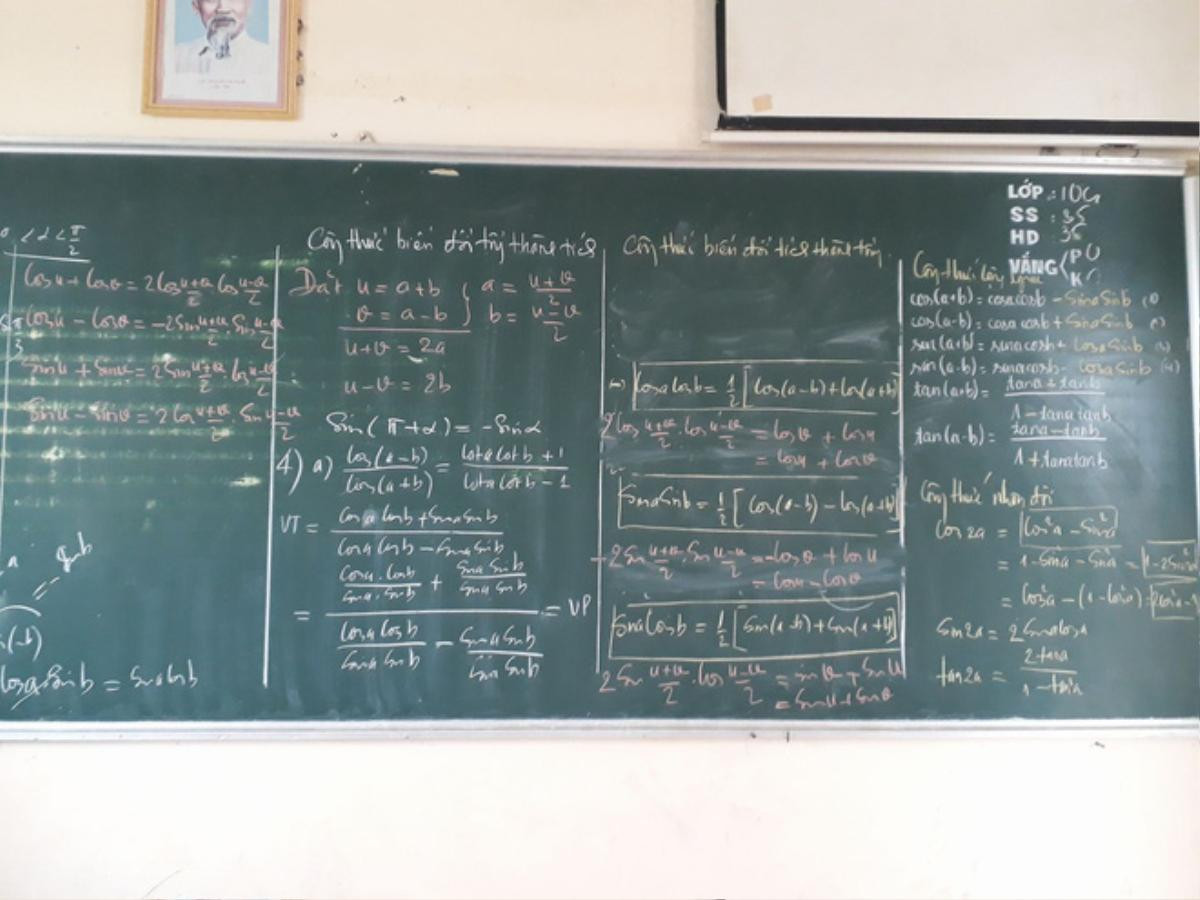 0 < α < π/2
cosu + cosv = 2cos (u+v)/2 cos (u-v)/2
cosu - cosv = -2sin (u+v)/2 sin (u-v)/2
sinu + sinv = 2sin (u+v)/2 cos (u-v)/2
sinu - sinv = 2cos (u+v)/2 . sin (u-v)/2
cosa sinb = sinacosb
Công thức biến đổi tổng thành tích
Đặt u = a+b } a = (u+v)/2
v = a-b } b = (u-v)/2
u+v = 2a
u-v = 2b
sin(π+α) = -sinα
4) a) cos(a-b)/cos(a+b) = (cotacotb+1)/(cotacotb-1)
VT = (cosacosb + sinasinb)/(cosacosb - sinasinb)
= ((cosa.cosb)/(sina.sinb) + (sinasinb)/(sinasinb))/((cosacosb)/(sinasinb) - (sinasinb)/(sinasinb)) = VP
Công thức biến đổi tích thành tổng
cosacosb = 1/2 [cos(a-b) + cos(a+b)]
2cos (u+v)/2 . cos (u-v)/2 = cosv + cosu
= cosu + cosv
sinasinb = 1/2 [cos(a-b) - cos(a+b)]
-2sin (u+v)/2 sin (u-v)/2 = -cosv + cosu
= cosu - cosv
sinacosb = 1/2 [sin(a-b) + sin(a+b)]
2sin (u+v)/2 . cos (u-v)/2 = sinv + sinu
= sinu + sinv
LỚP : 10G
SS : 35
HD : 35
VẮNG P 0
K 0
Công thức cộng
cos(a+b) = cosacosb - sinasinb
cos(a-b) = cosacosb + sinasinb
sin(a+b) = sinacosb + cosasinb
sin(a-b) = sinacosb - cosasinb
tan(a+b) = (tana + tanb)/(1 - tanatanb)
tan(a-b) = (tana - tanb)/(1 + tanatanb)
Công thức nhân đôi
cos2a = cos²a - sin²a
= 1 - sin²a - sin²a = 1 - 2sin²a
= cos²a - (1 - cos²a) = 2cos²a - 1
sin2a = 2sinacosa
tan2a = 2tana/(1 - tan²a)